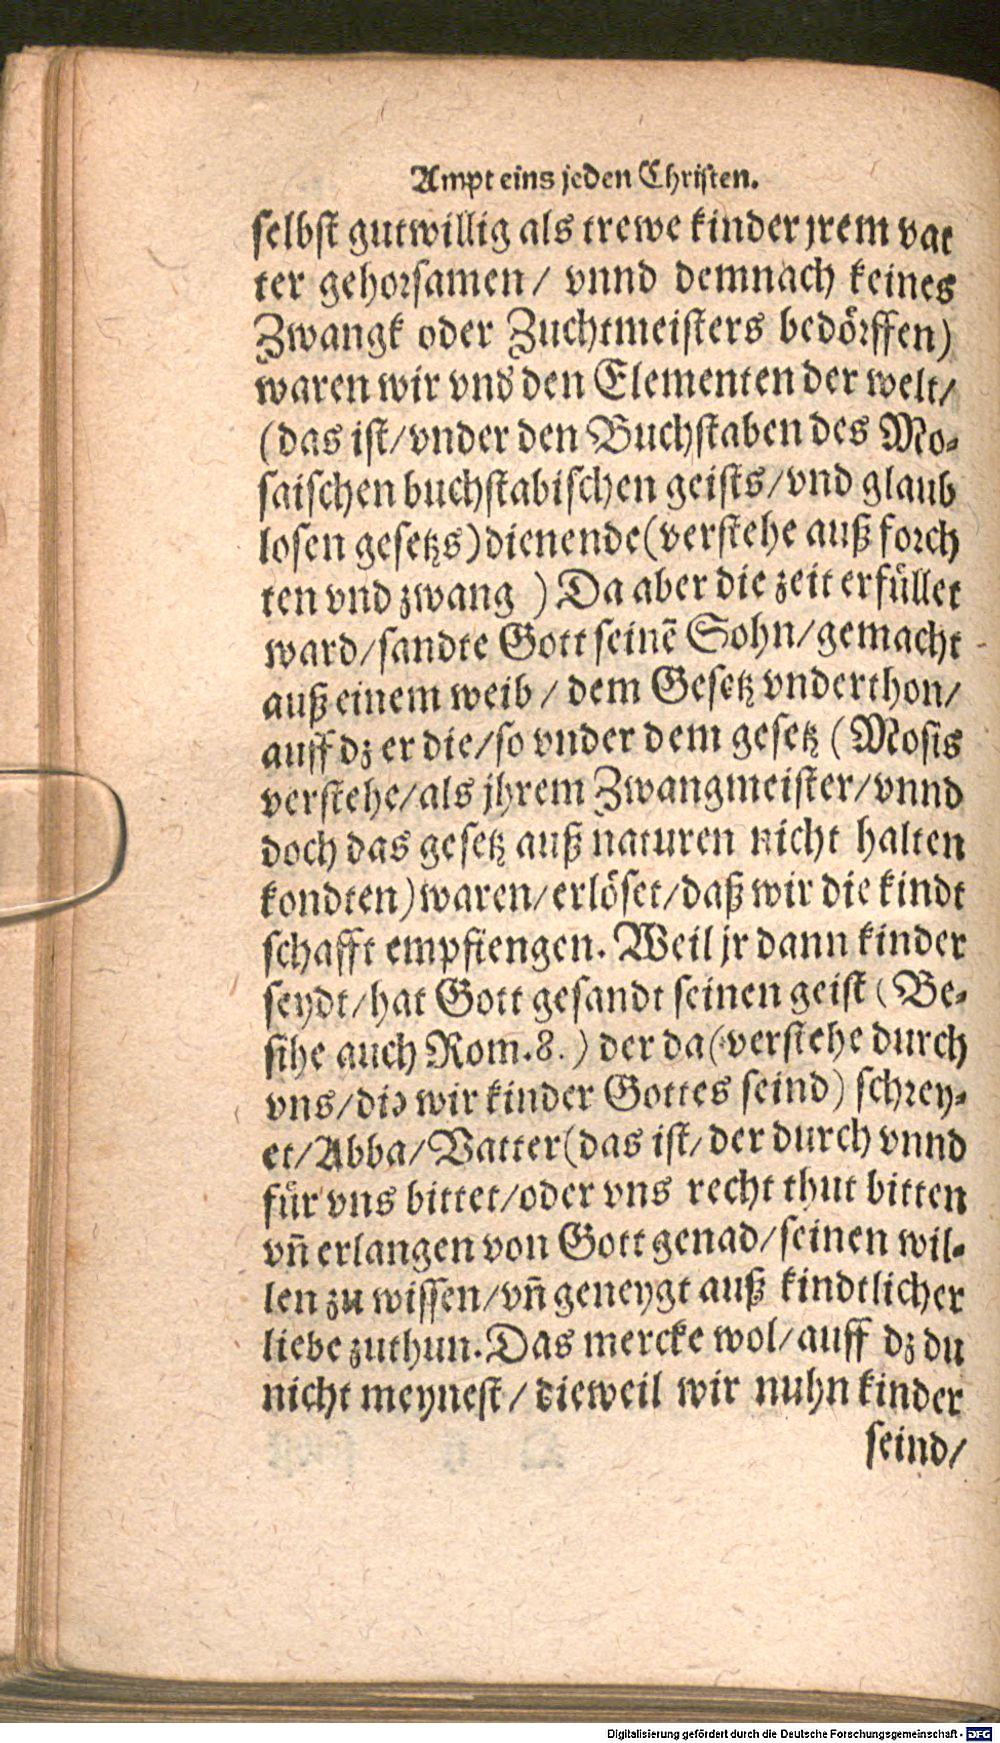 Ampt eins jeden Christen.
selbst gutwillig als trewe kinder jrem vat
ter gehorsamen / vnnd demnach keines
Zwangk oder Zuchtmeisters bedörffen)
waren wir vns den Elementen der welt/
(das ist/vnder den Buchstaben des Mo-
saischen buchstabischen geists/vnd glaub
losen gesetzs)dienende(verstehe auß forch
ten vnd zwang ) Da aber die zeit erfüllet
ward/sandte Gott seinē Sohn/gemacht
auß einem weib / dem Gesetz vnderthon/
auff dz er die/so vnder dem gesetz ( Mosis
verstehe/als jhrem Zwangmeister/vnnd
doch das gesetz auß naturen nicht halten
kondten)waren/erlöset/daß wir die kindt
schafft empfiengen. Weil jr dann kinder
seydt/hat Gott gesandt seinen geist ( Be-
sihe auch Rom.8. ) der da(verstehe durch
vns/die wir kinder Gottes seind) schrey-
et/Abba/Vatter(das ist/der durch vnnd
für vns bittet/oder vns recht thut bitten
vn̄ erlangen von Gott genad/seinen wil-
len zu wissen/vn̄ geneygt auß kindtlicher
liebe zuthun. Das mercke wol/auff dz du
nicht meynest / dieweil wir nuhn kinder
seind/
Digitalisierung gefördert durch die Deutsche Forschungsgemeinschaft - DFG